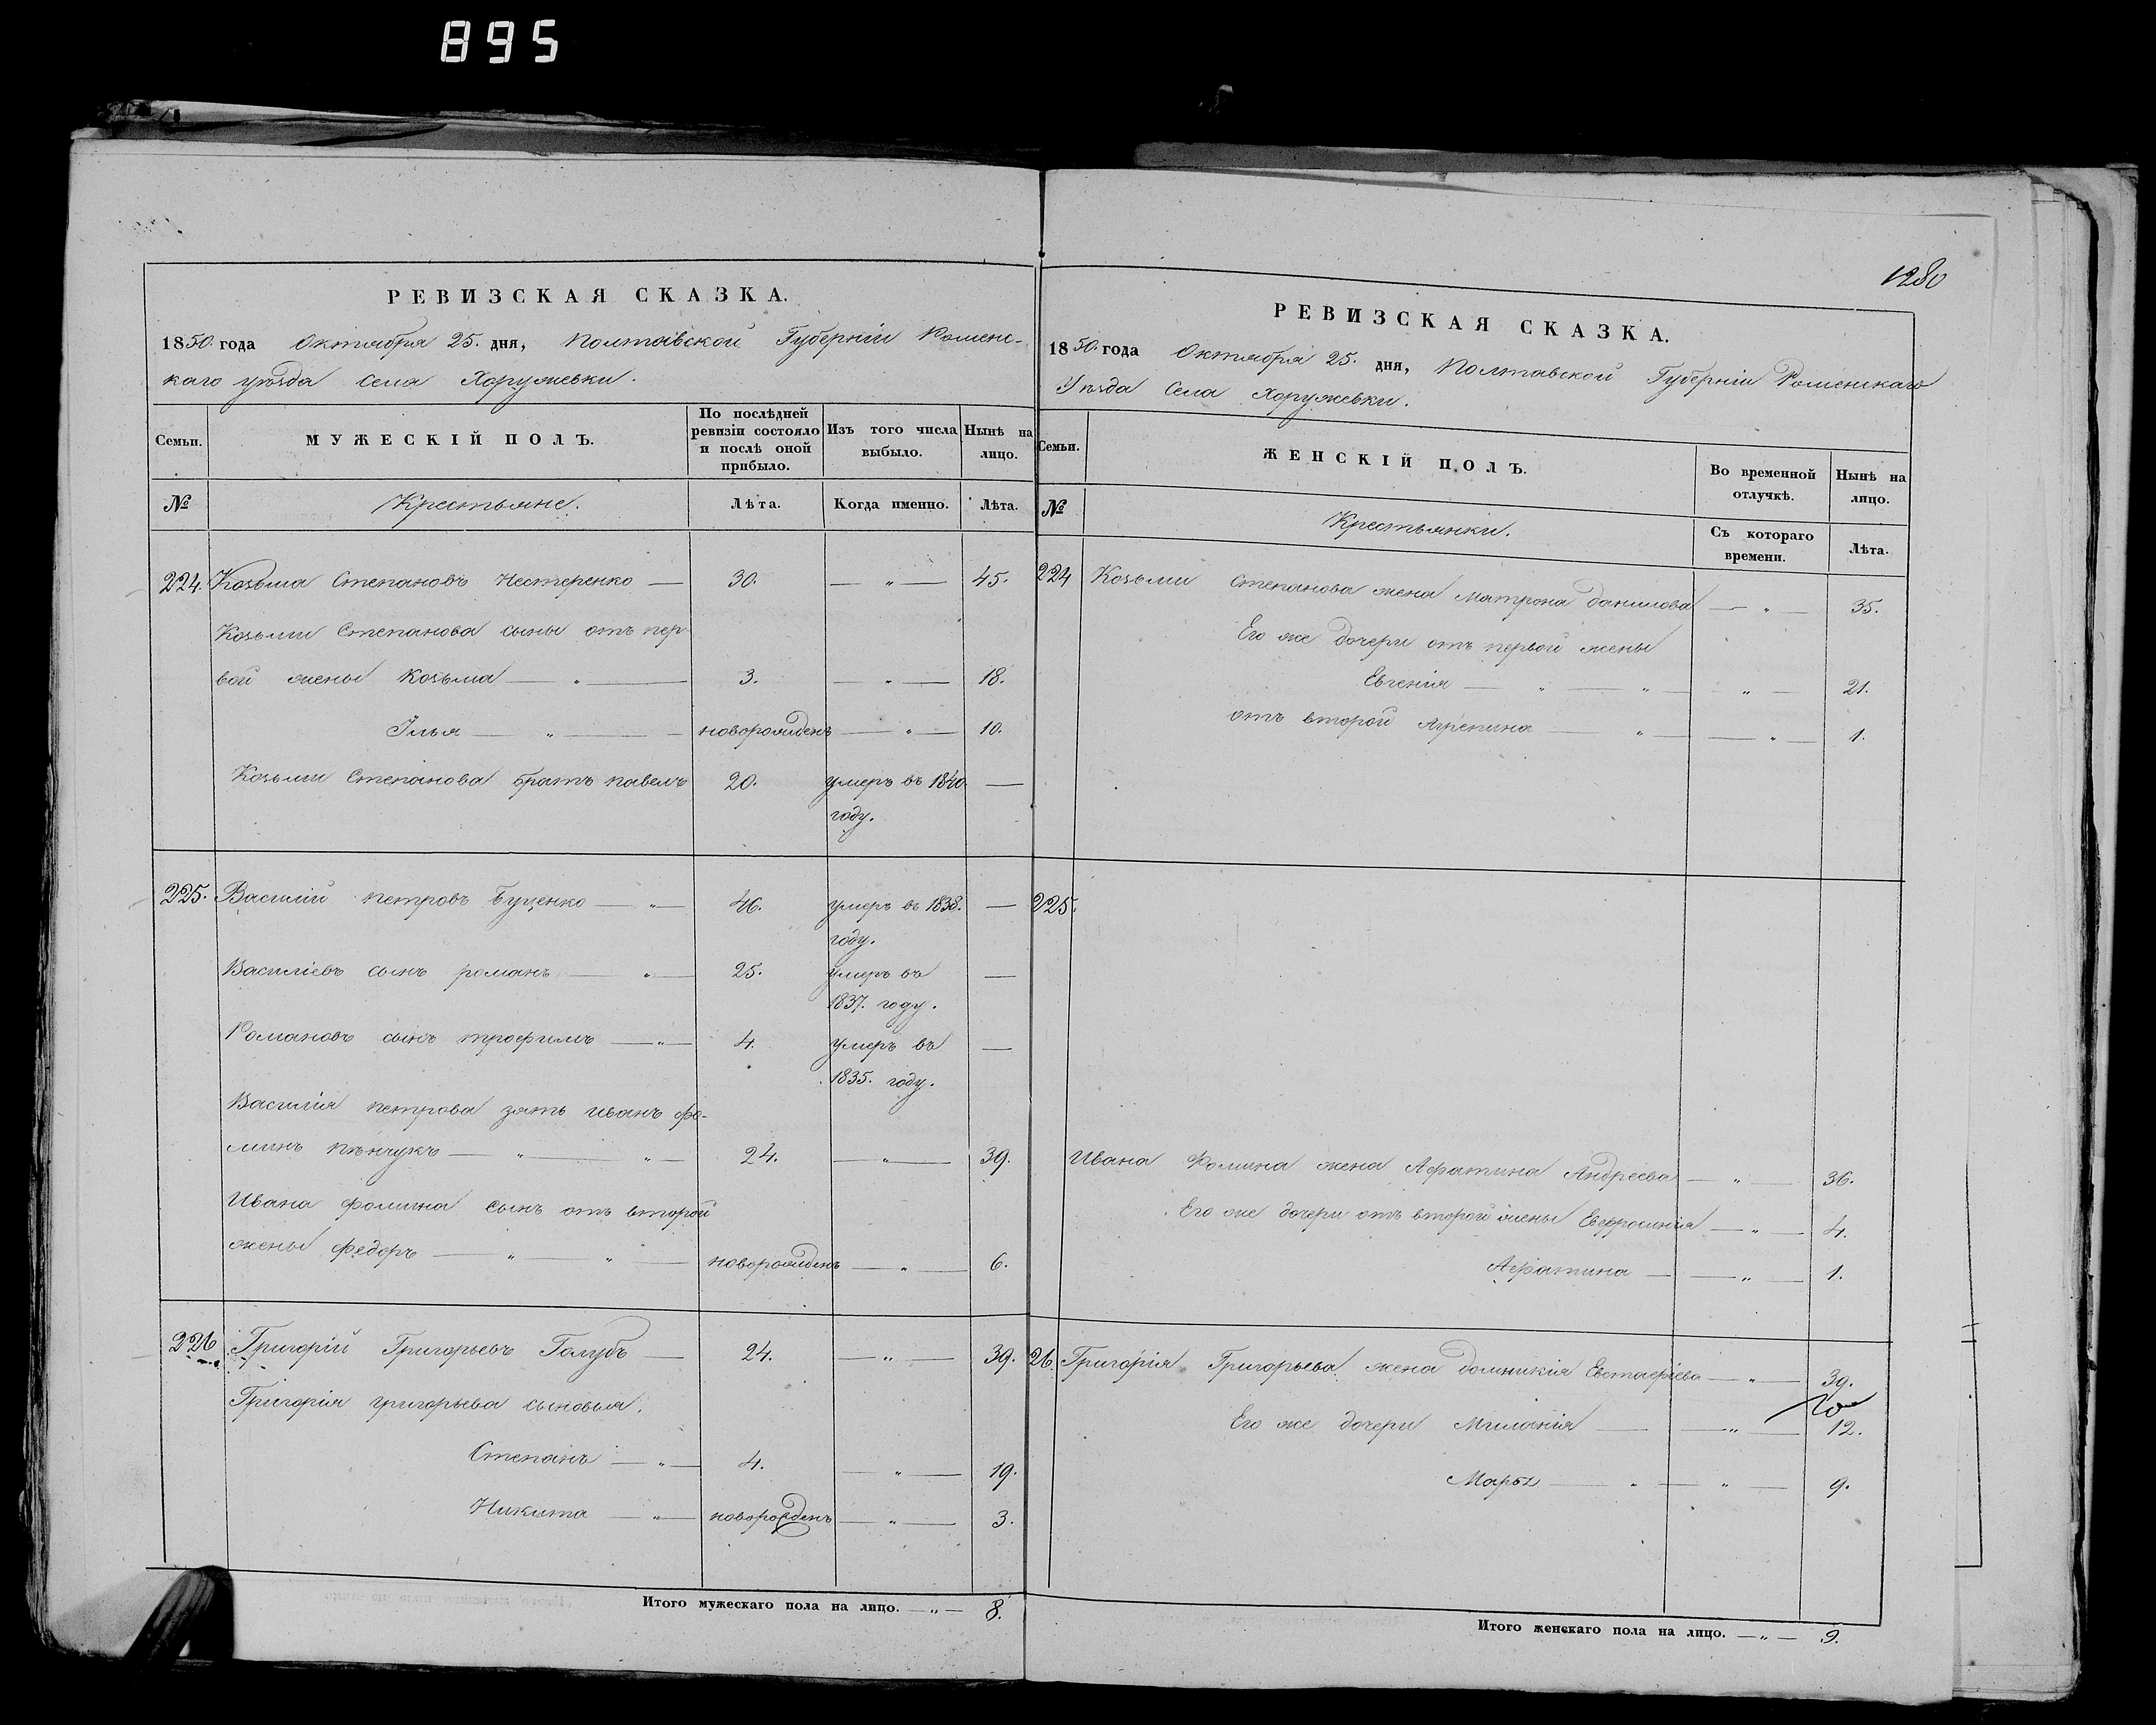 895
1280
РЕВИЗСКАЯ СКАЗКА.
1850. года Октября 25. дня, Полтавской Губерніи Роменс-
каго уѣзда Села Хоружевки.
Семьи. МУЖЕСКІЙ ПОЛЪ. По послѣдней ревизіи состояло и послѣ оной прибыло. Изъ того числа выбыло. Нынѣ на лицо.
№ Крестьяне. Лѣта. Когда именно. Лѣта.
224. Козьма Степановъ Нестеренко — 30. — „ — 45.
Козьми Степанова сыны отъ пер-
вой жены Козьма — „ — 3. — „ — 18.
Илья — „ — новорожденъ — „ — 10.
Козьми Степанова братъ павелъ 20. умеръ въ 1840. —
году.
225. Василій петровъ Буценко — „ — 46. умеръ въ 1838. —
году.
Василіевъ сынъ романъ — „ — 25. умеръ въ —
1837. году.
Романовъ сынъ трофимъ — „ — 4. умеръ въ —
1835. году.
Василія петрова зять иванъ фо-
минъ — „ — „ — 24. — „ — 39.
Ивана фомина сынъ отъ второй
жены федоръ — „ — „ — новорожденъ — „ — 6.
226 Григорій Григорьевъ Голубъ — 24. — „ — 39.
Григорія григорьева сыновья.
Степанъ — „ — 4. — „ — 19.
Никита — „ — новорожденъ — „ — 3.
Итого мужескаго пола на лицо. — „ — 8.
РЕВИЗСКАЯ СКАЗКА.
1850. года Октября 25. дня, Полтавской Губерніи Роменскаго
Уѣзда Села Хоружевки.
Семьи. ЖЕНСКІЙ ПОЛЪ. Во временной отлучкѣ. Нынѣ на лицо.
№ Крестьянки. Съ котораго времени. Лѣта.
224 Козьми Степанова жена Матрона данилова — „ — 35.
Его же дочери отъ первой жены
Евгенія — „ — „ — „ — 21.
отъ второй Агрепина — „ — — „ — 1.
225.
Ивана Фомина жена Агафтина Андреева — „ — 36.
Его же дочери отъ второй жены Евфросинія — „ — 4.
— — „ — 1.
26. Григорія Григорьева жена домникія Евстафіева — „ — 39.
Его же дочери Миланія — — „ — 12.
Марья — „ — „ — 9.
Итого женскаго пола на лицо. — „ — 9.